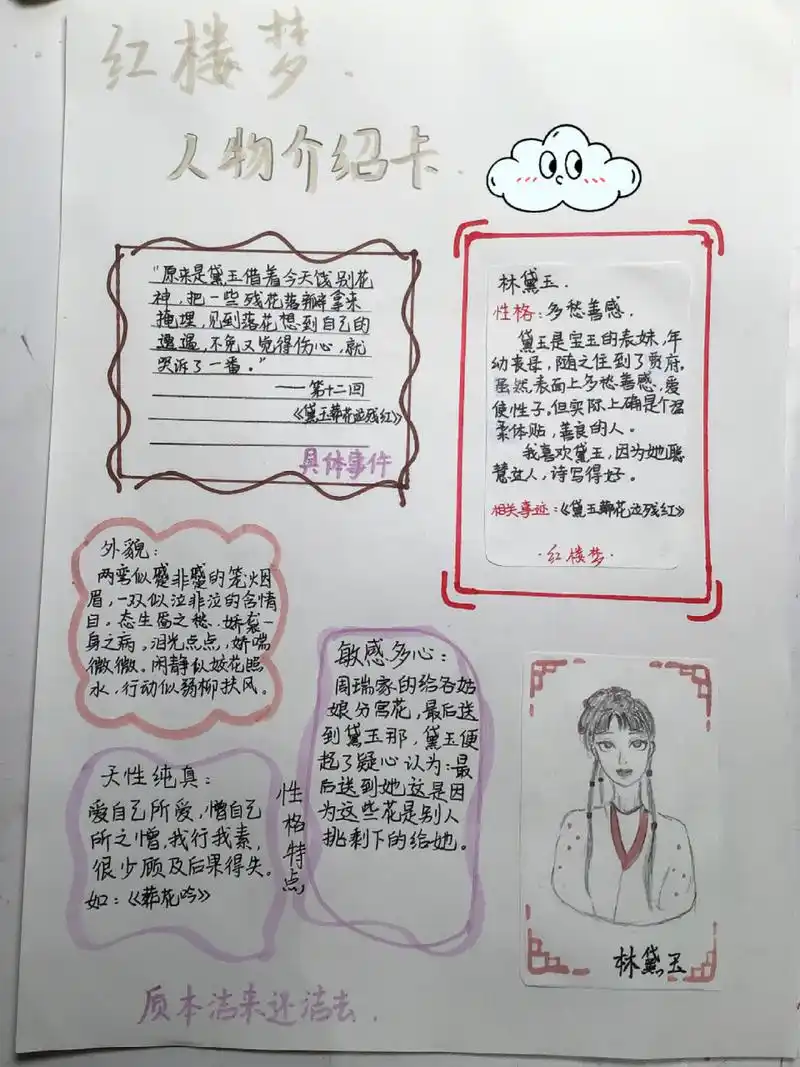 红楼梦.
人物介绍卡.
“原来是黛玉借着今天饯别花
神，把一些残花落瓣拿来
掩埋，见到落花想到自己的
遭遇，不免又觉得伤心，就
哭诉了一番。”
——第十二回
《黛玉葬花泣残红》
具体事件
林黛玉.
性格：多愁善感.
黛玉是宝玉的表妹，年
幼丧母，随之住到了贾府.
虽然表面上多愁善感，爱
使性子，但实际上确是个温
柔体贴，善良的人。
我喜欢黛玉，因为她聪
慧过人，诗写得好。
相关事迹：《黛玉葬花泣残红》
·红楼梦·
外貌：
两弯似蹙非蹙的笼烟
眉，一双似泣非泣的含情
目，态生靥之愁，娇袭一
身之病。泪光点点，娇喘
微微。闲静似姣花照
水，行动似弱柳扶风。
敏感多心：
周瑞家的给各姑
娘分宫花，最后送
到黛玉那，黛玉便
起了疑心认为：最
后送到她这是因
为这些花是别人
挑剩下的给她。
天性纯真：
爱自己所爱，憎自己
所之憎，我行我素，
很少顾及后果得失。
如：《葬花吟》
性格特点
林黛玉
质本洁来还洁去.